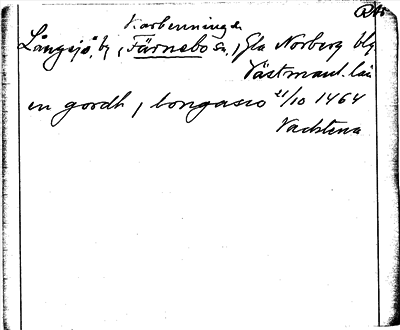 Karbenning s
Långsjö, by, Färnebo sn, Gla Norberg blg
Västmanl. län
en gordh j longasio 21/10 1464
Vadstena